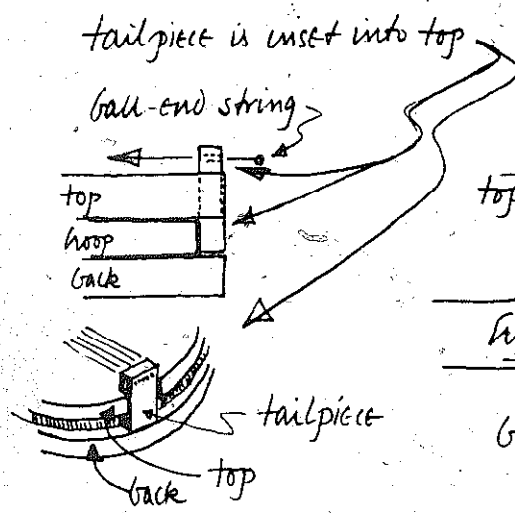 tailpiece is inset into top
ball-end string
top
hoop
back
top
tailpiece
top
back